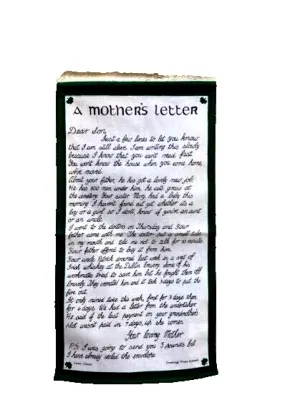 A MOTHER'S LETTER
Dear Son,
Just a few lines to let you know
that I am still alive. I am writing this slowly
because I know that you can't read fast.
You won't know the house when you come home,
we've moved.
About your father, he has got a lovely new job.
He has 500 men under him, he cuts grass at
the cemetery. Your sister Mary had a baby this
morning. I haven't found out yet whether its a
boy or a girl so I don't know if you're an aunt
or an uncle.
I went to the doctors on Thursday and Your
father came with me. The doctor put a small tube
in my mouth and told me not to talk for 10 minutes.
Your father offered to buy it from him.
Your uncle Patrick drowned last week in a vat of
Irish whiskey at the Dublin brewery. Some of his
workmates tried to save him but he fought them off
bravely. They cremated him and it took 3 days to put the
fire out.
It only rained twice this week, first for 3 days then
for 4 days. We had a letter from the undertaker.
He said if the last payment on your grandmother's
plot wasn't paid in 7 days, up she comes.
Your loving Mother
P.S. I was going to send you 5 pounds but
I have already sealed the envelope.